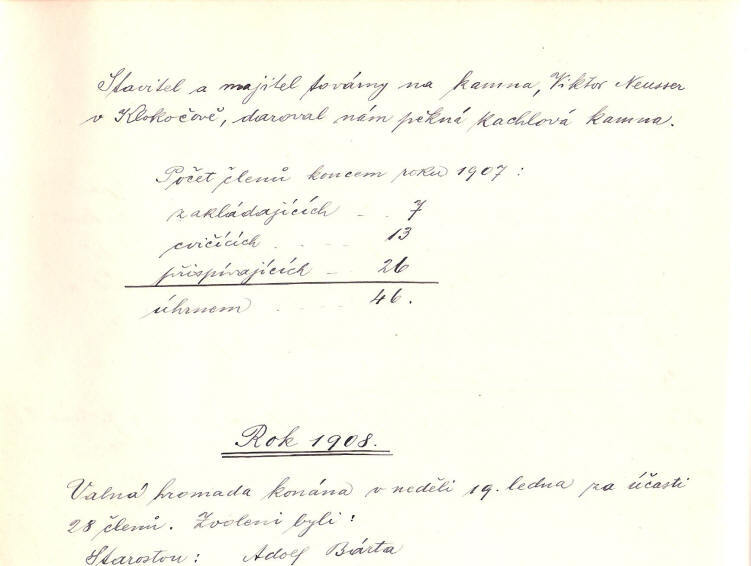 Stavitel a majitel továrny na kamna, Viktor Neusser
v Klokočově, daroval nám pěkná kachlová kamna.
Počet členů koncem roku 1907 :
zakládajících - - 7
cvičících - - - 13
přispívajících - 26
úhrnem - - - 46.
Rok 1908.
Valná hromada konána v neděli 19. ledna za účasti
28 členů. Zvoleni byli :
Starostou : Adolf Bárta